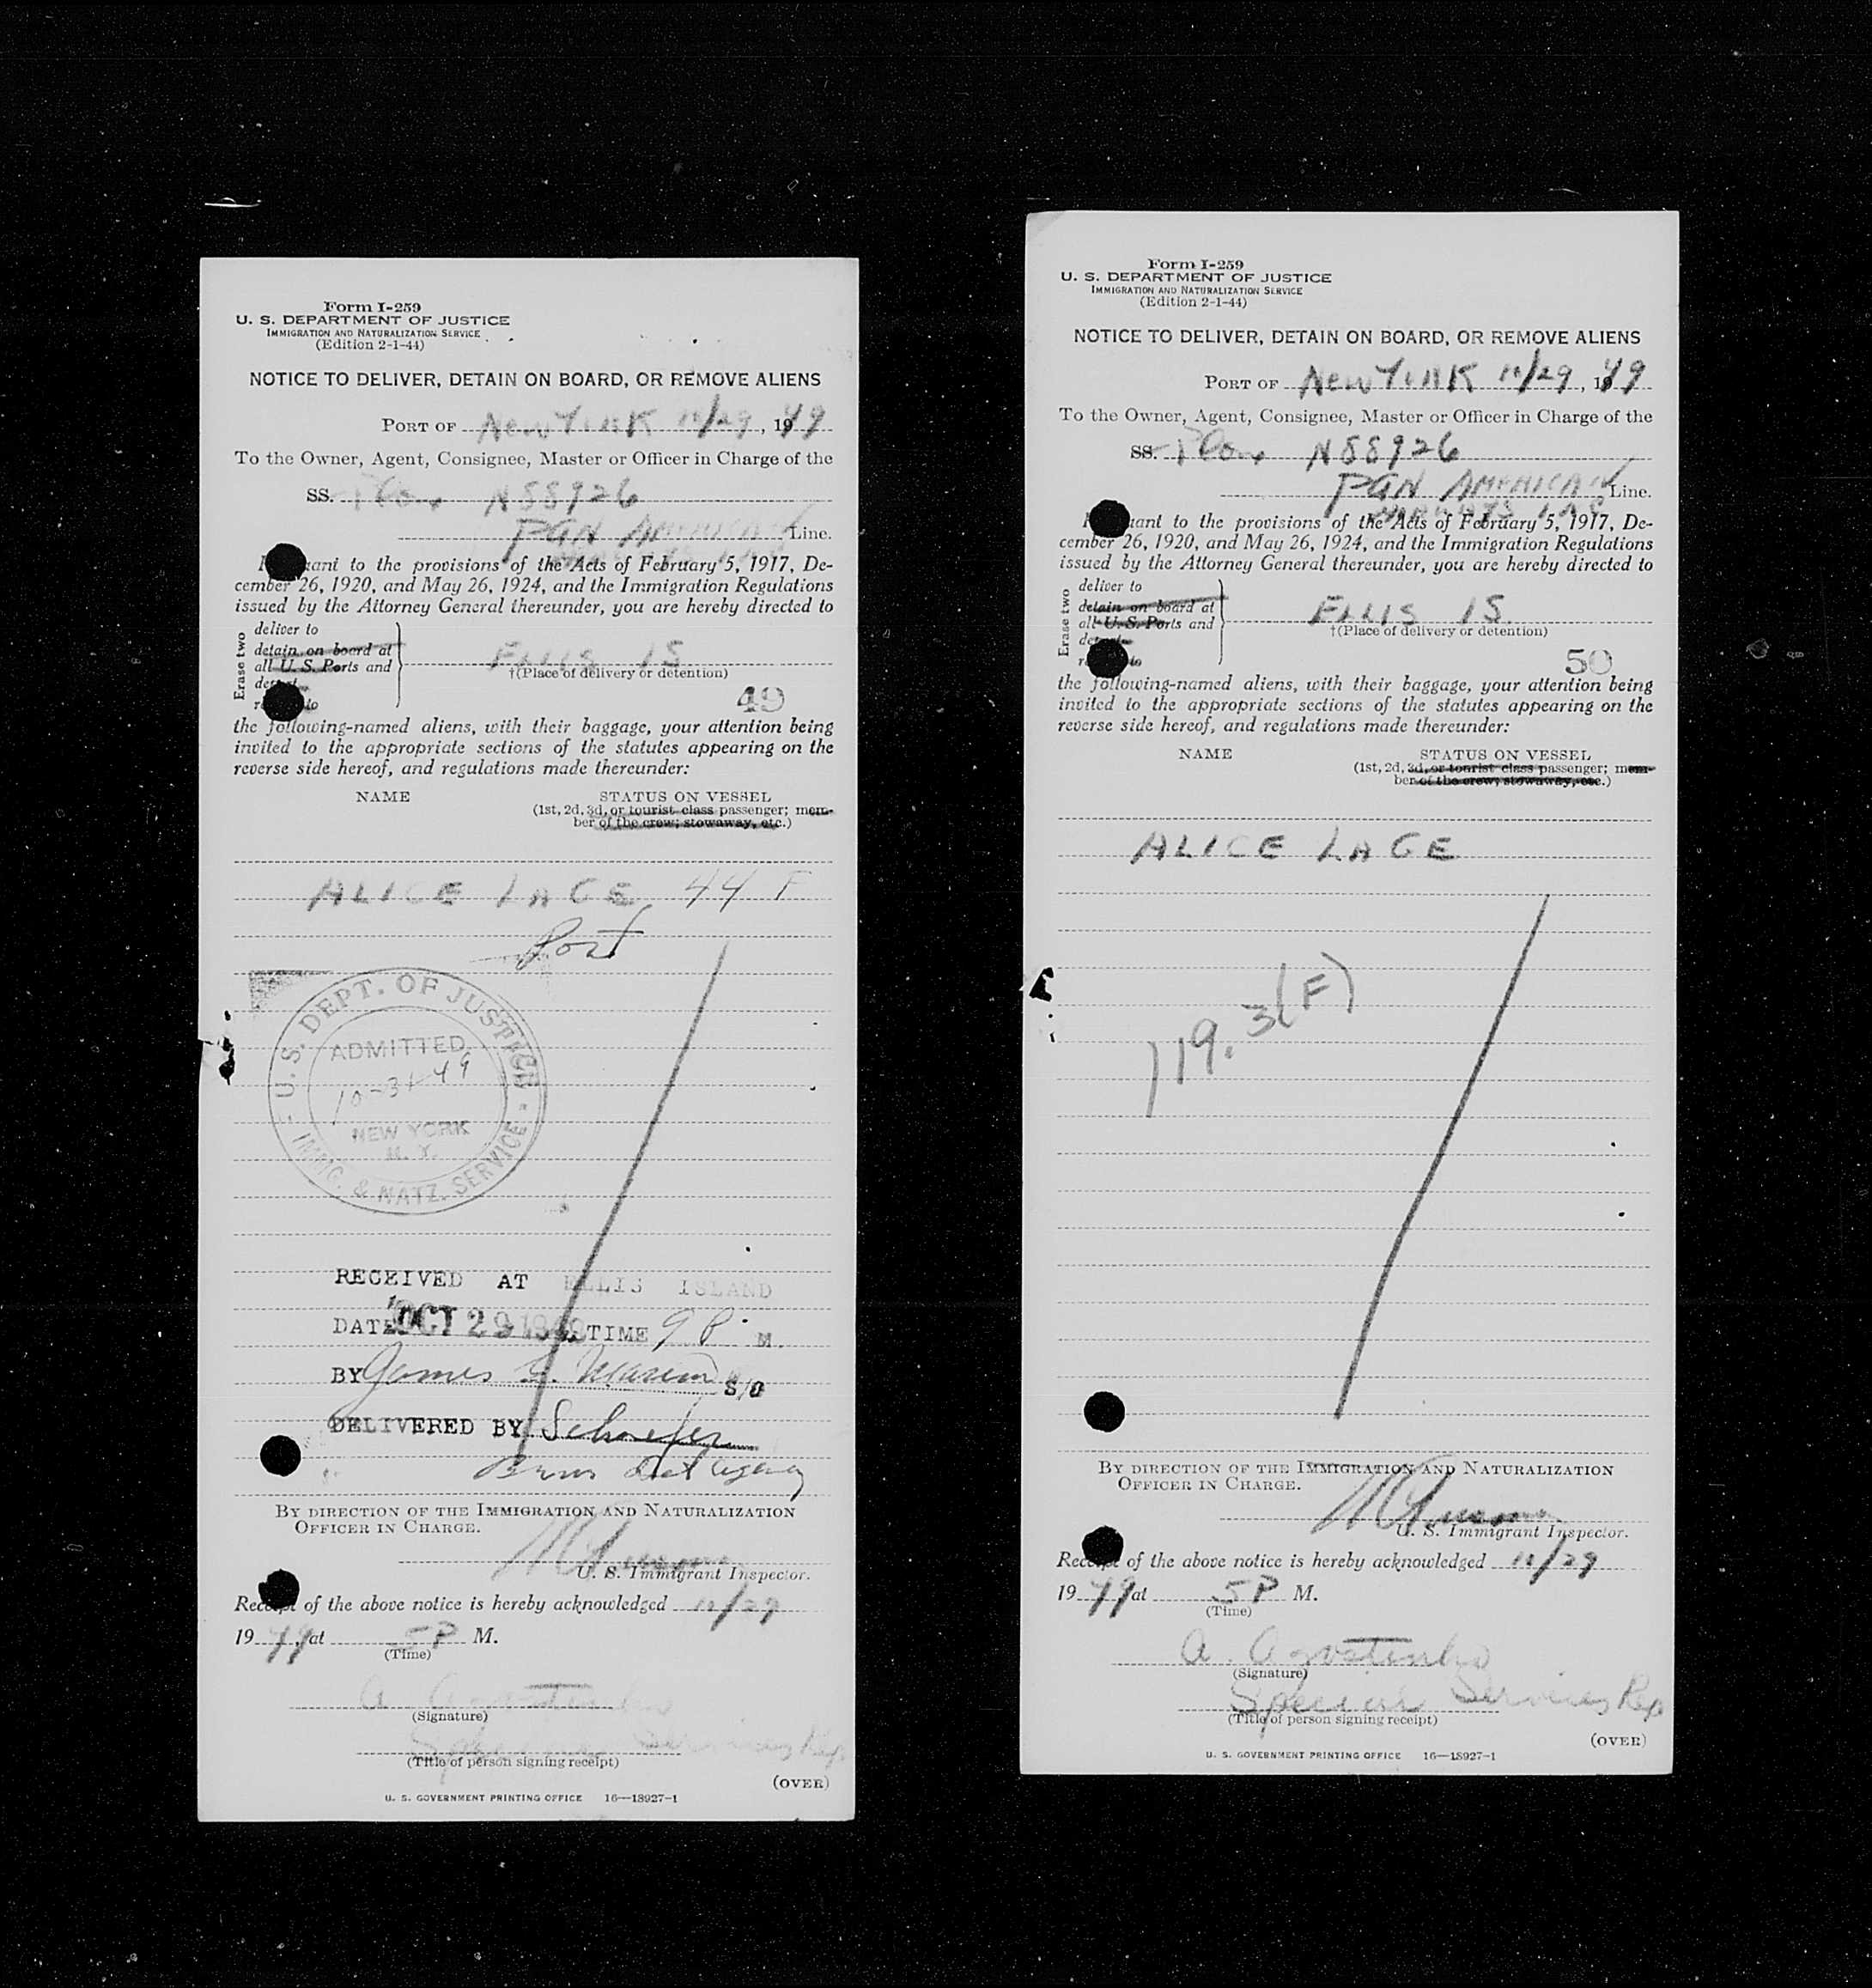 Form I-259
U. S. DEPARTMENT OF JUSTICE
IMMIGRATION AND NATURALIZATION SERVICE
(Edition 2-1-44)
NOTICE TO DELIVER, DETAIN ON BOARD, OR REMOVE ALIENS
PORT OF New York 10/29, 1949
To the Owner, Agent, Consignee, Master or Officer in Charge of the
SS. N88926
PAN AMERICAN Line.
to the provisions of the Acts of February 5, 1917, De-
cember 26, 1920, and May 26, 1924, and the Immigration Regulations
issued by the Attorney General thereunder, you are hereby directed to
Erase two
deliver to
detain on board at
all U. S. Ports and
ELLIS IS
†(Place of delivery or detention)
49
the following-named aliens, with their baggage, your attention being
invited to the appropriate sections of the statutes appearing on the
reverse side hereof, and regulations made thereunder:
NAME STATUS ON VESSEL
(1st, 2d, 3d, or tourist class passenger; mem-
ber of the crew; stowaway, etc.)
ALICE LAGE 44 F
Port
U.S. DEPT. OF JUSTICE
ADMITTED
10-31-49
NEW YORK
N. Y.
IMMIG. & NATZ. SERVICE
RECEIVED AT ELLIS ISLAND
DATE OCT 29 1949 TIME 9 P. M.
BY James S/O
DELIVERED BY Schaefer
Det Agency
BY DIRECTION OF THE IMMIGRATION AND NATURALIZATION
OFFICER IN CHARGE.
U. S. Immigrant Inspector.
Receipt of the above notice is hereby acknowledged 10/29
1949, at 5 P M.
(Time)
(Signature)
Special Services Rep
(Title of person signing receipt)
(OVER)
U. S. GOVERNMENT PRINTING OFFICE 16—18927-1
Form I-259
U. S. DEPARTMENT OF JUSTICE
IMMIGRATION AND NATURALIZATION SERVICE
(Edition 2-1-44)
NOTICE TO DELIVER, DETAIN ON BOARD, OR REMOVE ALIENS
PORT OF New York 10/29, 1949
To the Owner, Agent, Consignee, Master or Officer in Charge of the
SS. N88926
PAN AMERICAN Line.
AIRWAYS INC
to the provisions of the Acts of February 5, 1917, De-
cember 26, 1920, and May 26, 1924, and the Immigration Regulations
issued by the Attorney General thereunder, you are hereby directed to
Erase two
deliver to
detain on board at
all U. S. Ports and
ELLIS IS.
†(Place of delivery or detention)
50
the following-named aliens, with their baggage, your attention being
invited to the appropriate sections of the statutes appearing on the
reverse side hereof, and regulations made thereunder:
NAME STATUS ON VESSEL
(1st, 2d, 3d, or tourist class passenger; mem-
ber of the crew; stowaway, etc.)
ALICE LAGE
119.3(F)
BY DIRECTION OF THE IMMIGRATION AND NATURALIZATION
OFFICER IN CHARGE.
U. S. Immigrant Inspector.
Receipt of the above notice is hereby acknowledged 10/29
1949 at 5 P M.
(Time)
A. Agostinho
(Signature)
Special Services Rep
(Title of person signing receipt)
(OVER)
U. S. GOVERNMENT PRINTING OFFICE 16—18927-1